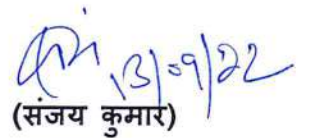 13/09/22
(संजय कुमार)